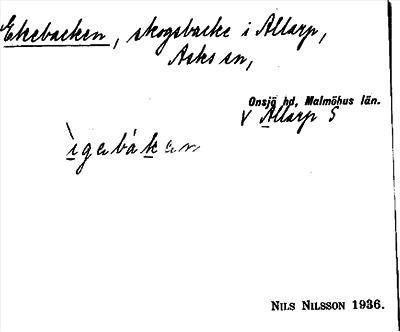 Ekebacken, skogsbacke i Allarp,
Asks sn,
Onsjö hd, Malmöhus län.
V Allarp 5
ìgabákan
NILS NILSSON 1936.